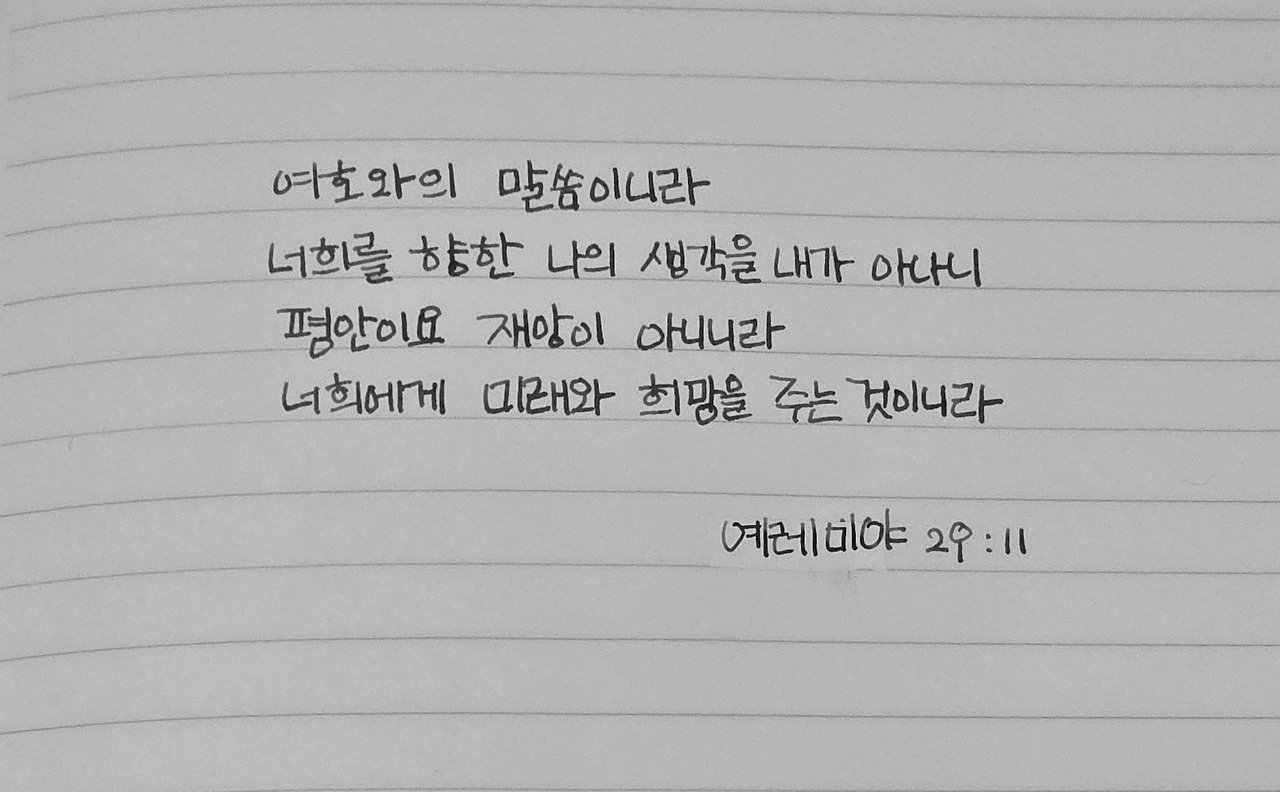 여호와의 말씀이니라
너희를 향한 나의 생각을 내가 아나니
평안이요 재앙이 아니니라
너희에게 미래와 희망을 주는 것이니라
예레미야 29:11